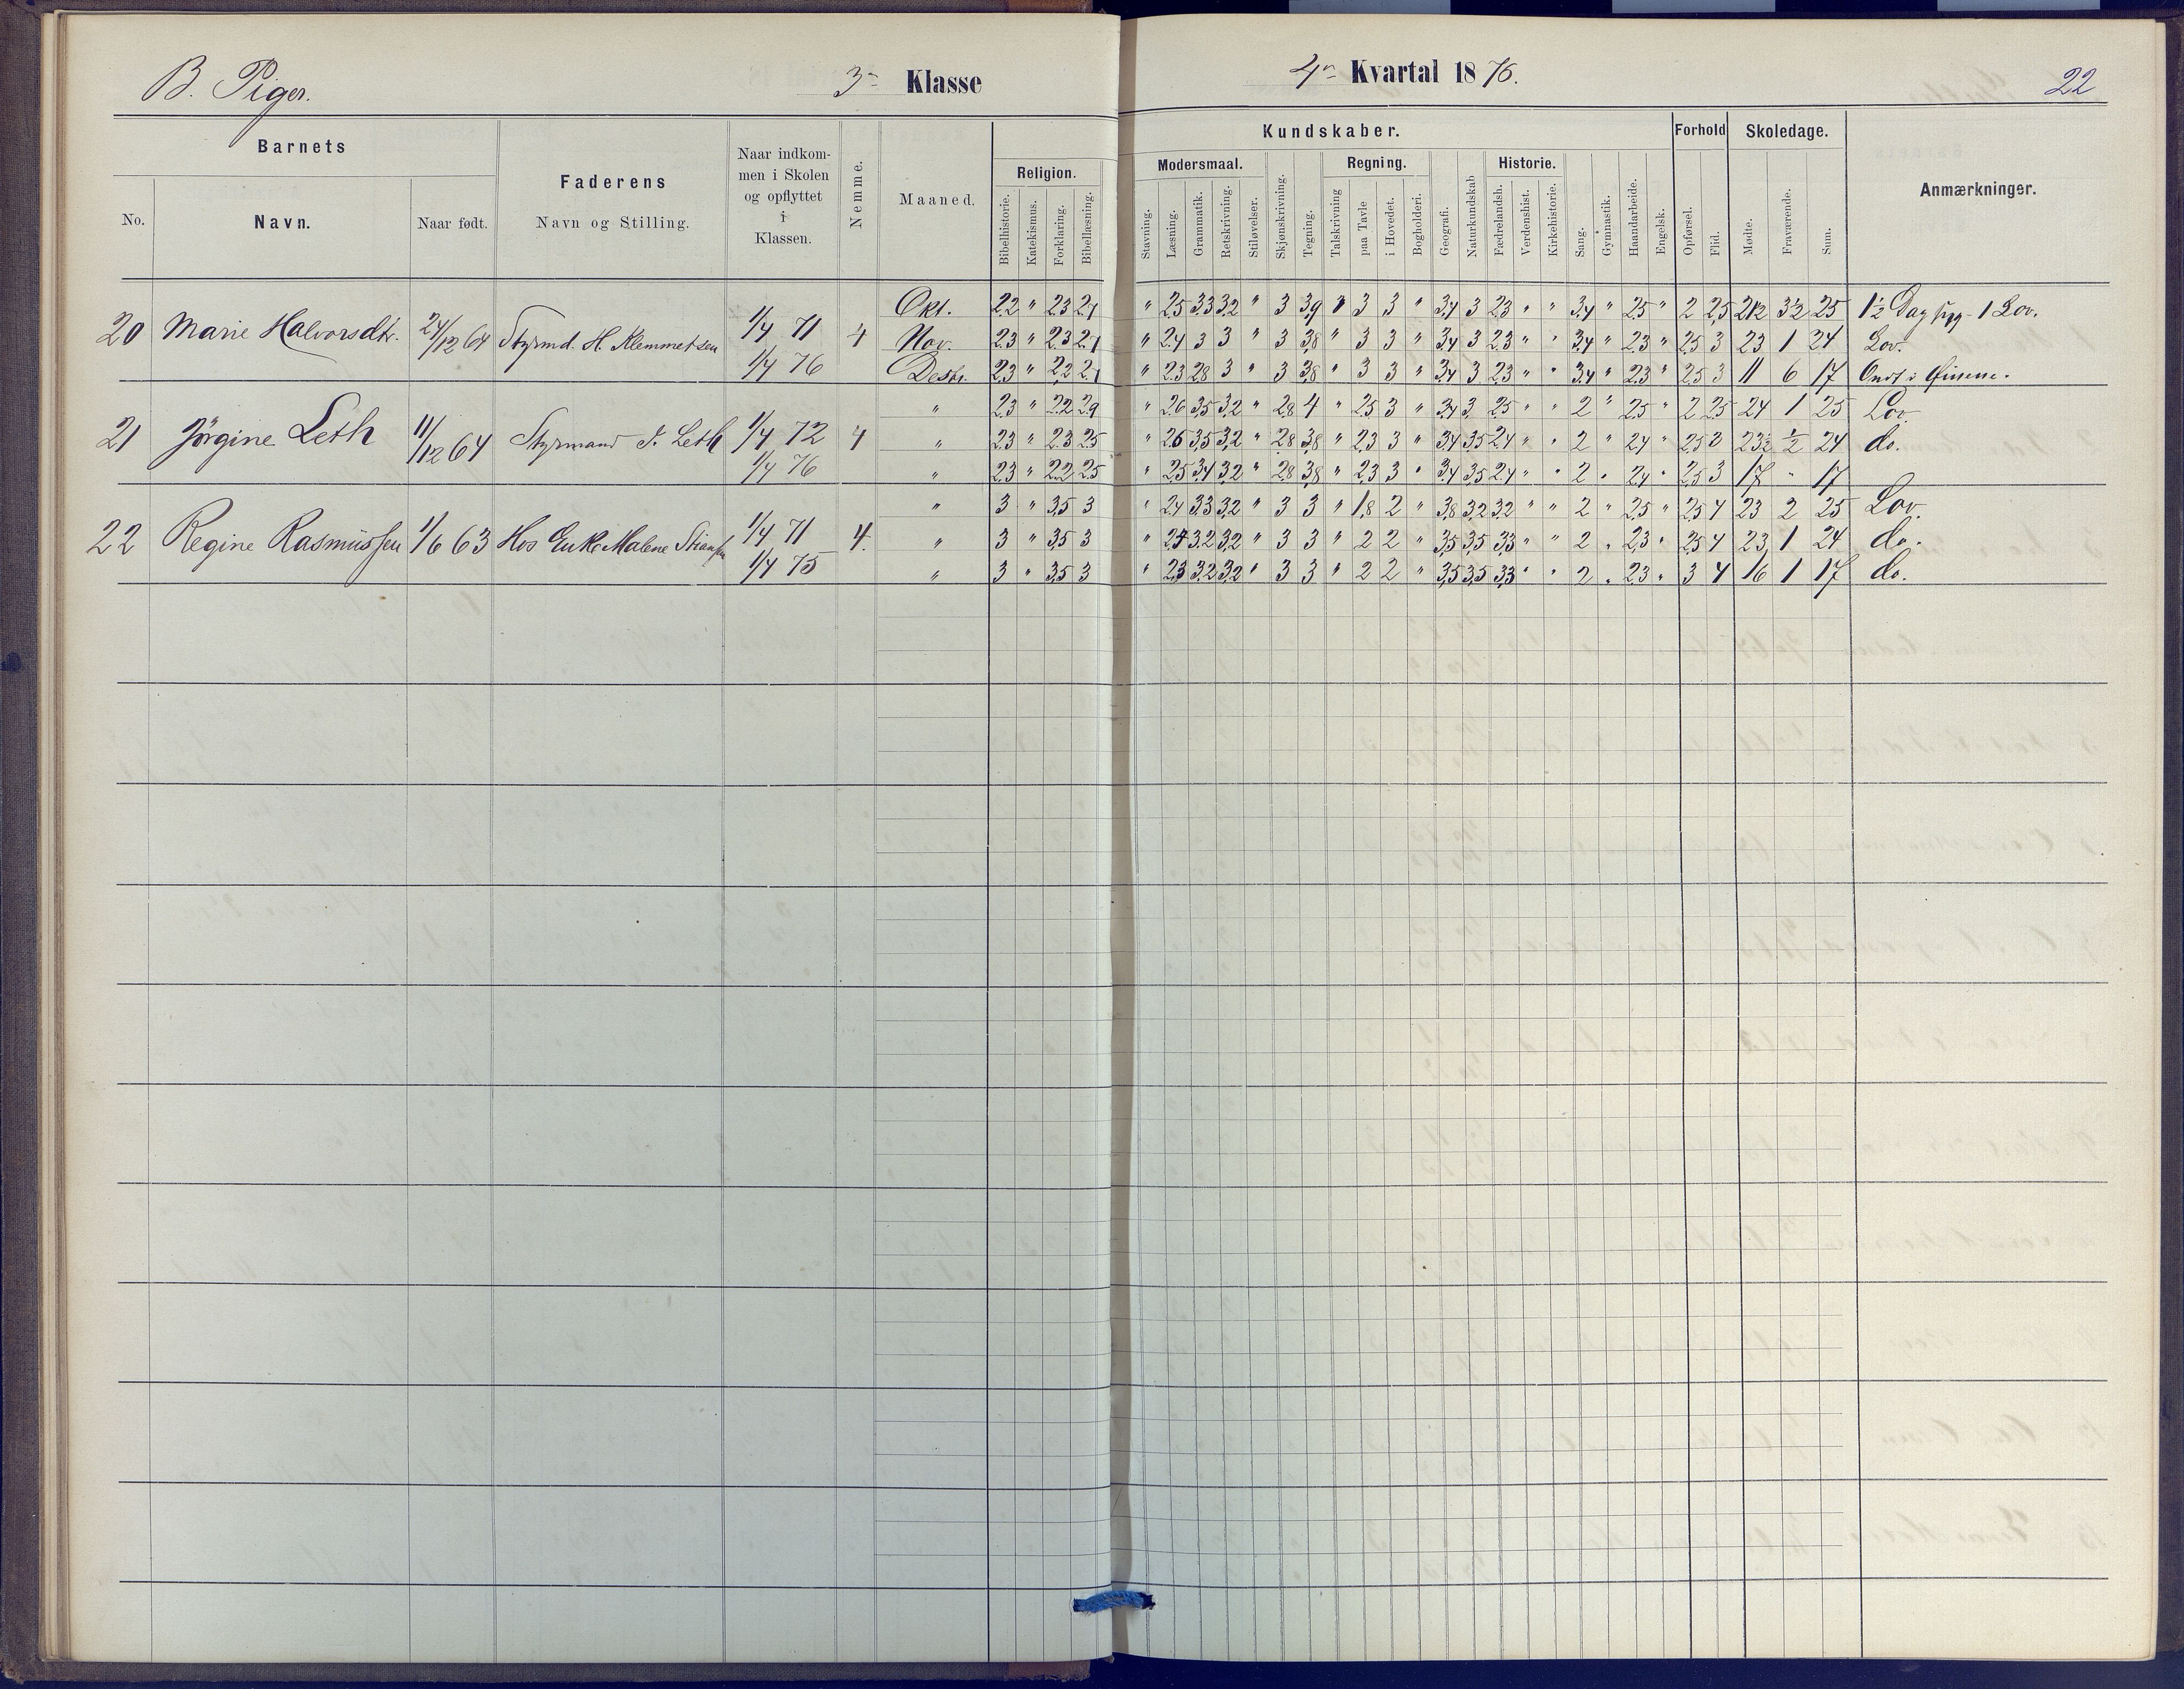 B. Piger.
3- Klasse
4n Kvartal 1876.
22
Barnets
No.
Navn.
Naar født.
Faderens
Navn og Stilling.
Naar indkom-
men i Skolen
og opflyttet
i
Klassen.
Nemme.
Maaned.
Religion.
Bibelhistorie.
Katekismus.
Forklaring.
Bibellæsning.
Kundskaber.
Modersmaal.
Stavning.
Læsning.
Grammatik.
Retskrivning.
Stiløvelser.
Skjønskrivning.
Tegning.
Regning.
Talskrivning
paa Tavle
i Hovedet.
Bogholderi.
Geografi.
Naturkundskab
Historie.
Fædrelandsh.
Verdenshist.
Kirkehistorie.
Sang.
Gymnastik.
Haandarbeide.
Engelsk.
Forhold
Opførsel.
Flid.
Skoledage.
Mødte.
Fraværende.
Sum.
Anmærkninger.
20 Marie Halvorsdtr. 24/12 64 Styrmd. H. Klemmetsen 1/4 71 1/4 76 4
Okt. 2,2 " 2,3 2,1 " 2,5 3,3 3,2 " 3 3,9 " 3 3 " 3,4 3 2,3 " " 3,4 " 2,5 " 2 2,5 21½ 3½ 25 1½ Dag syg - 1 Lov.
Nov. 2,3 " 2,3 2,1 " 2,4 3 3 " 3 3,8 " 3 3 " 3,4 3 2,3 " " 3,4 " 2,3 " 2,5 3 23 1 24 Lov.
Desbr. 2,3 " 2,2 2,1 " 2,3 2,8 3 " 3 3,8 " 3 3 " 3,4 3 2,3 " " 3,4 " 2,3 " 2,5 3 11 6 17 Ondt i Øinene.
21 Jörgine Leth 11/12 64 Styrmand J. Leth 1/4 72 1/4 76 4
" 2,3 " 2,2 2,9 " 2,6 3,5 3,2 " 2,8 4 " 2,5 3 " 3,4 3 2,5 " " 2 " 2,5 " 2 2,5 24 1 25 Lov.
" 2,3 " 2,3 2,5 " 2,6 3,5 3,2 " 2,8 3,8 " 2,3 3 " 3,4 3,5 2,4 " " 2 " 2,4 " 2,5 3 23½ ½ 24 do.
" 2,3 " 2,2 2,5 " 2,5 3,4 3,2 " 2,8 3,8 " 2,3 3 " 3,4 3,5 2,4 " " 2 " 2,4 " 2,5 3 17 " 17
22 Regine Rasmussen 1/6 63 Hos Enke Malene 1/4 71 1/4 75 4.
" 3 " 3,5 3 " 2,4 3,3 3,2 " 3 3 " 1,8 2 " 3,8 3,2 3,2 " " 2 " 2,5 " 2,5 4 23 2 25 Lov.
" 3 " 3,5 3 " 3,2 3,2 " 3 3 " 2 2 " 3,5 3,5 3,3 " " 2 " 2,3 " 2,5 4 23 1 24 do.
" 3 " 3,5 3 " 2,3 3,2 3,2 " 3 3 " 2 2 " 3,5 3,5 3,3 " " 2 " 2,3 " 3 4 16 1 17 do.